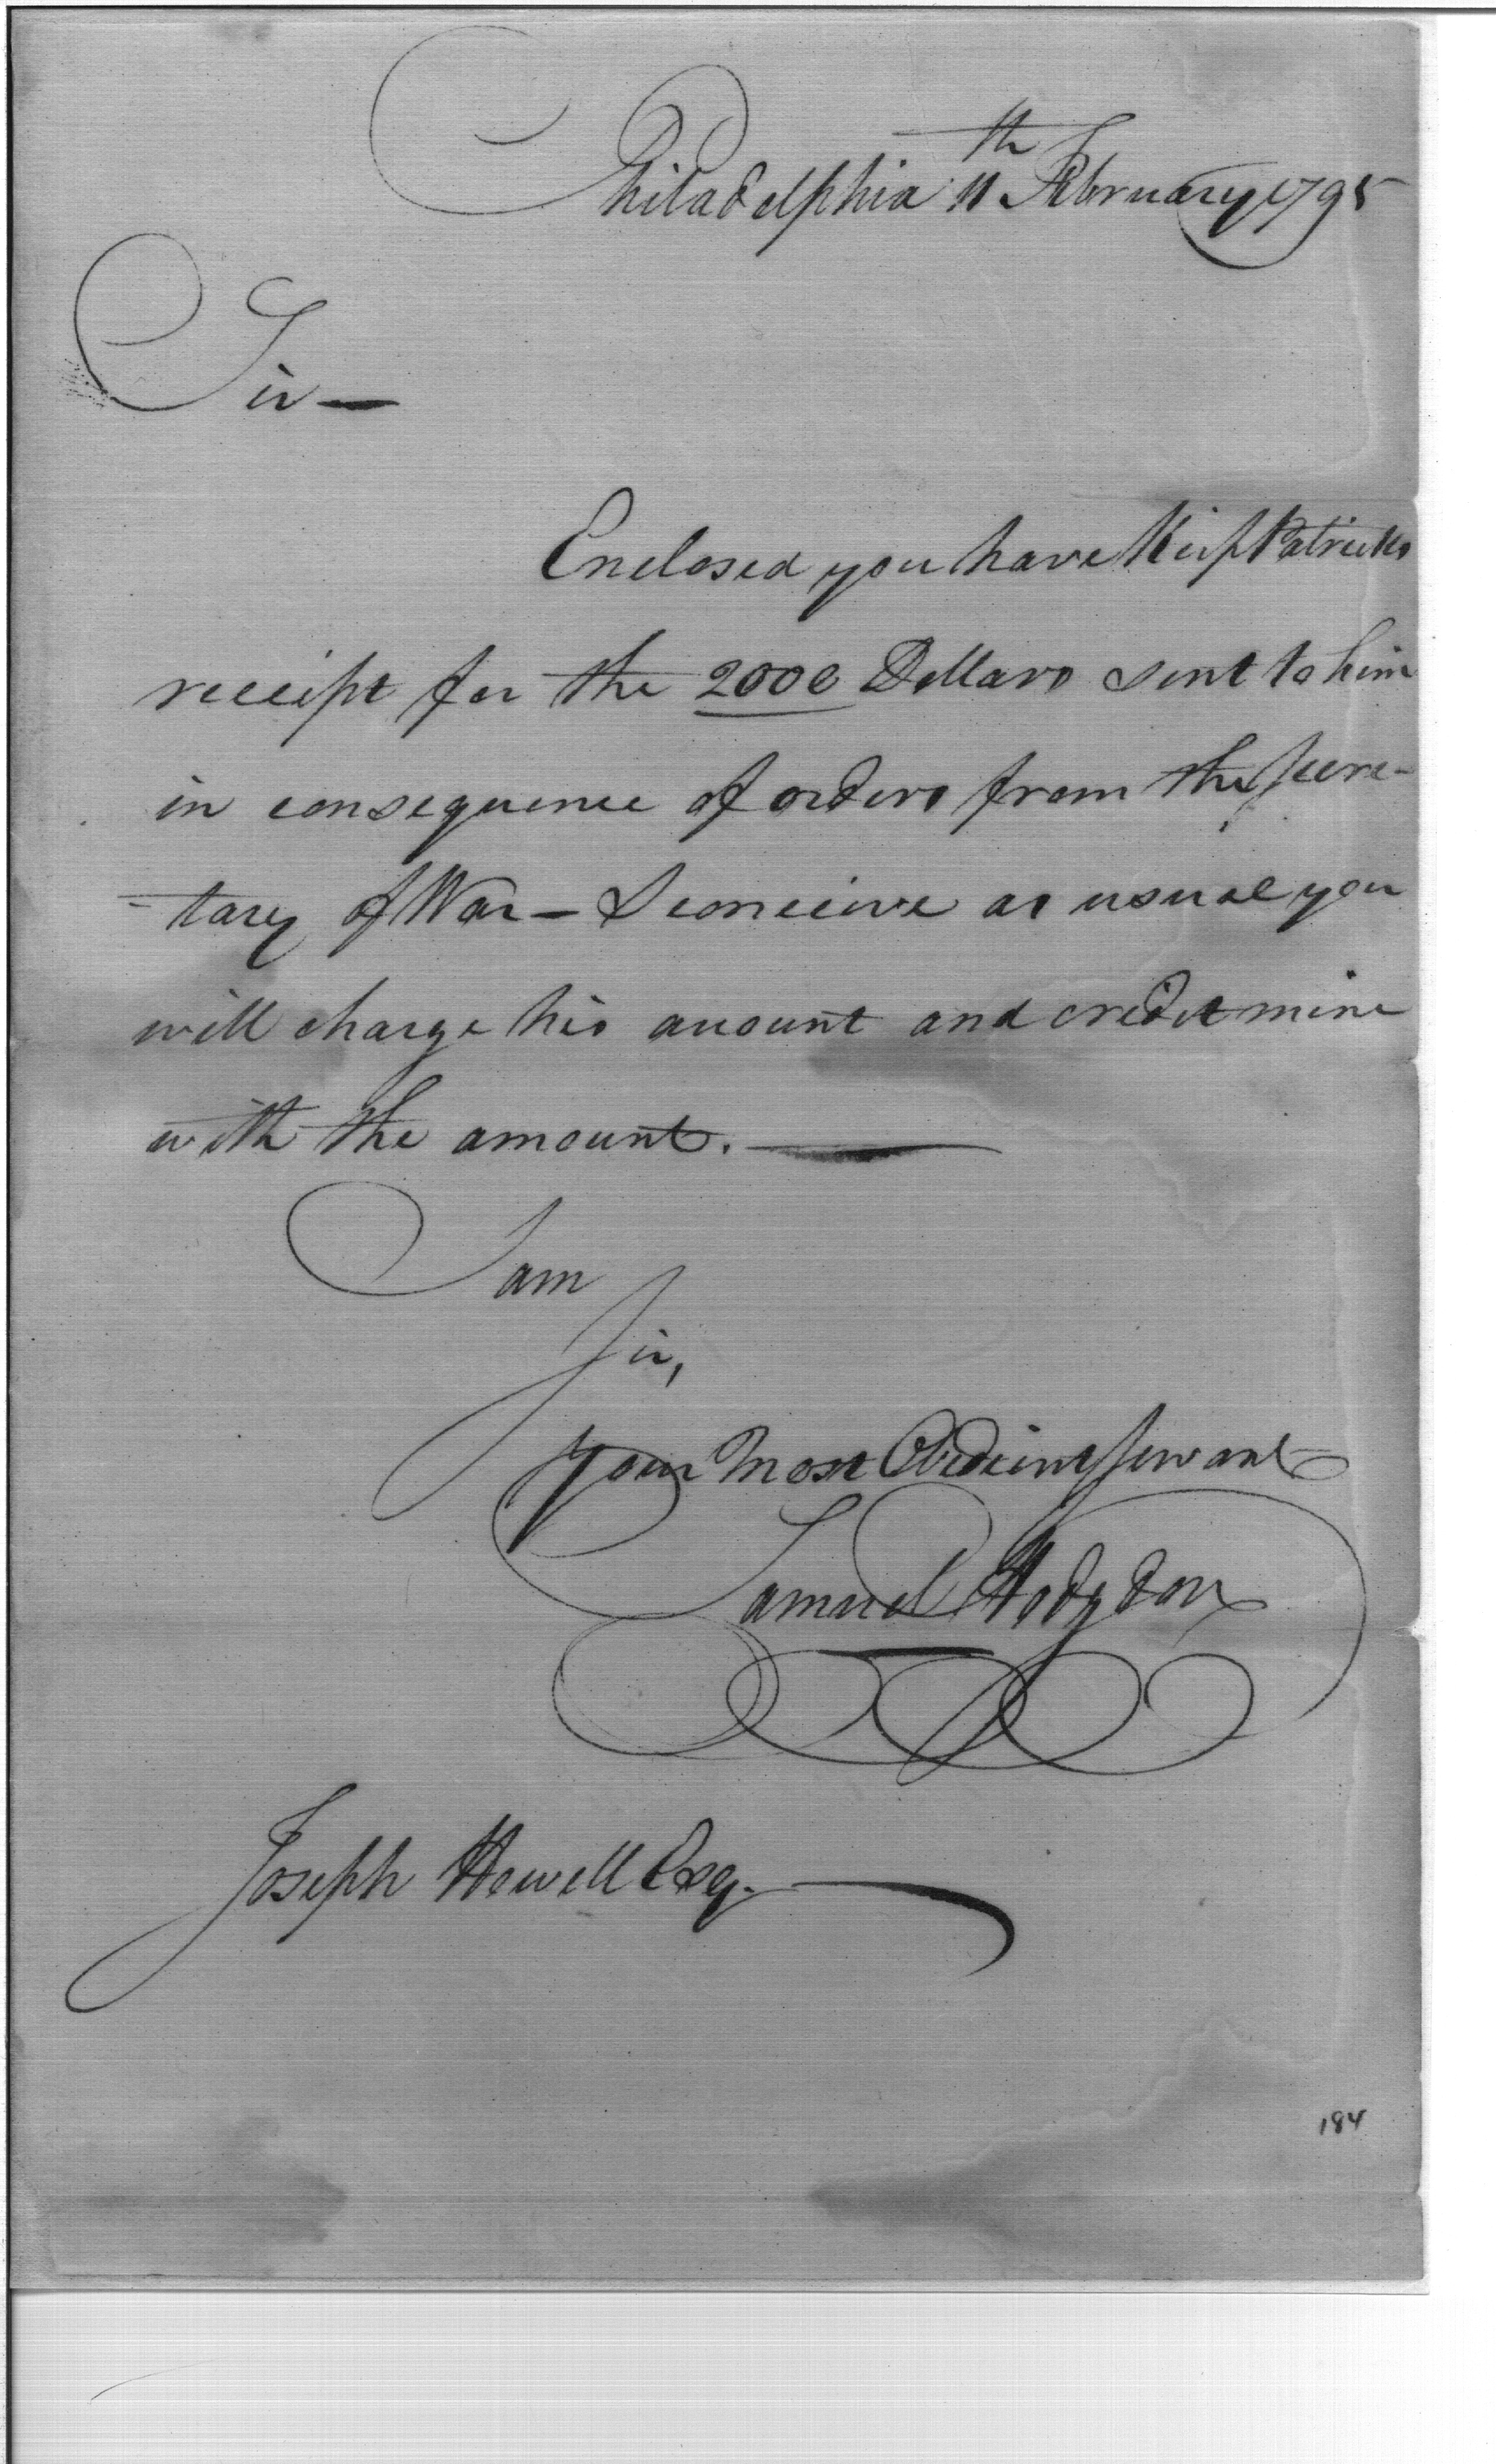 Philadelphia 11th February 1795
Sir —
Enclosed you have KirkPatricks
receipt for the 2000 Dollars sent to him
in consequence of orders from the Secre-
-tary of War — I conceive as usual you
will charge his account and credit mine
with the amount. —
I am
Sir,
Your Most Obedient Servant
Samuel Hodgdon
Joseph Howell Esq. —
184